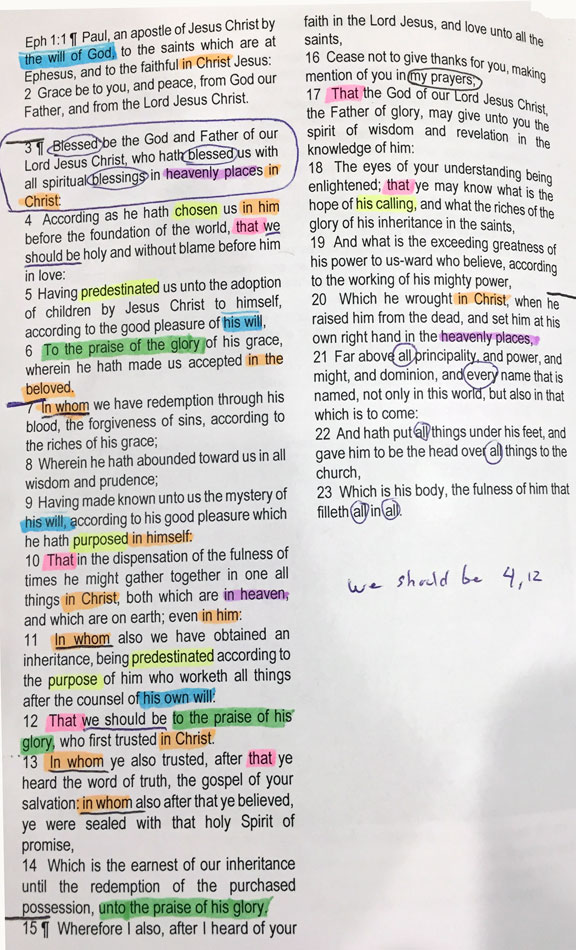 Eph 1:1 ¶ Paul, an apostle of Jesus Christ by
the will of God, to the saints which are at
Ephesus, and to the faithful in Christ Jesus:
2 Grace be to you, and peace, from God our
Father, and from the Lord Jesus Christ.
3 ¶ Blessed be the God and Father of our
Lord Jesus Christ, who hath blessed us with
all spiritual blessings in heavenly places in
Christ:
4 According as he hath chosen us in him
before the foundation of the world, that we
should be holy and without blame before him
in love:
5 Having predestinated us unto the adoption
of children by Jesus Christ to himself,
according to the good pleasure of his will,
6 To the praise of the glory of his grace,
wherein he hath made us accepted in the
beloved.
7 In whom we have redemption through his
blood, the forgiveness of sins, according to
the riches of his grace;
8 Wherein he hath abounded toward us in all
wisdom and prudence;
9 Having made known unto us the mystery of
his will, according to his good pleasure which
he hath purposed in himself:
10 That in the dispensation of the fulness of
times he might gather together in one all
things in Christ, both which are in heaven,
and which are on earth; even in him:
11 In whom also we have obtained an
inheritance, being predestinated according to
the purpose of him who worketh all things
after the counsel of his own will:
12 That we should be to the praise of his
glory, who first trusted in Christ.
13 In whom ye also trusted, after that ye
heard the word of truth, the gospel of your
salvation: in whom also after that ye believed,
ye were sealed with that holy Spirit of
promise,
14 Which is the earnest of our inheritance
until the redemption of the purchased
possession, unto the praise of his glory.
15 ¶ Wherefore I also, after I heard of your
faith in the Lord Jesus, and love unto all the
saints,
16 Cease not to give thanks for you, making
mention of you in my prayers;
17 That the God of our Lord Jesus Christ,
the Father of glory, may give unto you the
spirit of wisdom and revelation in the
knowledge of him:
18 The eyes of your understanding being
enlightened; that ye may know what is the
hope of his calling, and what the riches of the
glory of his inheritance in the saints,
19 And what is the exceeding greatness of
his power to us-ward who believe, according
to the working of his mighty power,
20 Which he wrought in Christ, when he
raised him from the dead, and set him at his
own right hand in the heavenly places,
21 Far above all principality, and power, and
might, and dominion, and every name that is
named, not only in this world, but also in that
which is to come:
22 And hath put all things under his feet, and
gave him to be the head over all things to the
church,
23 Which is his body, the fulness of him that
filleth all in all.
we should be 4,12